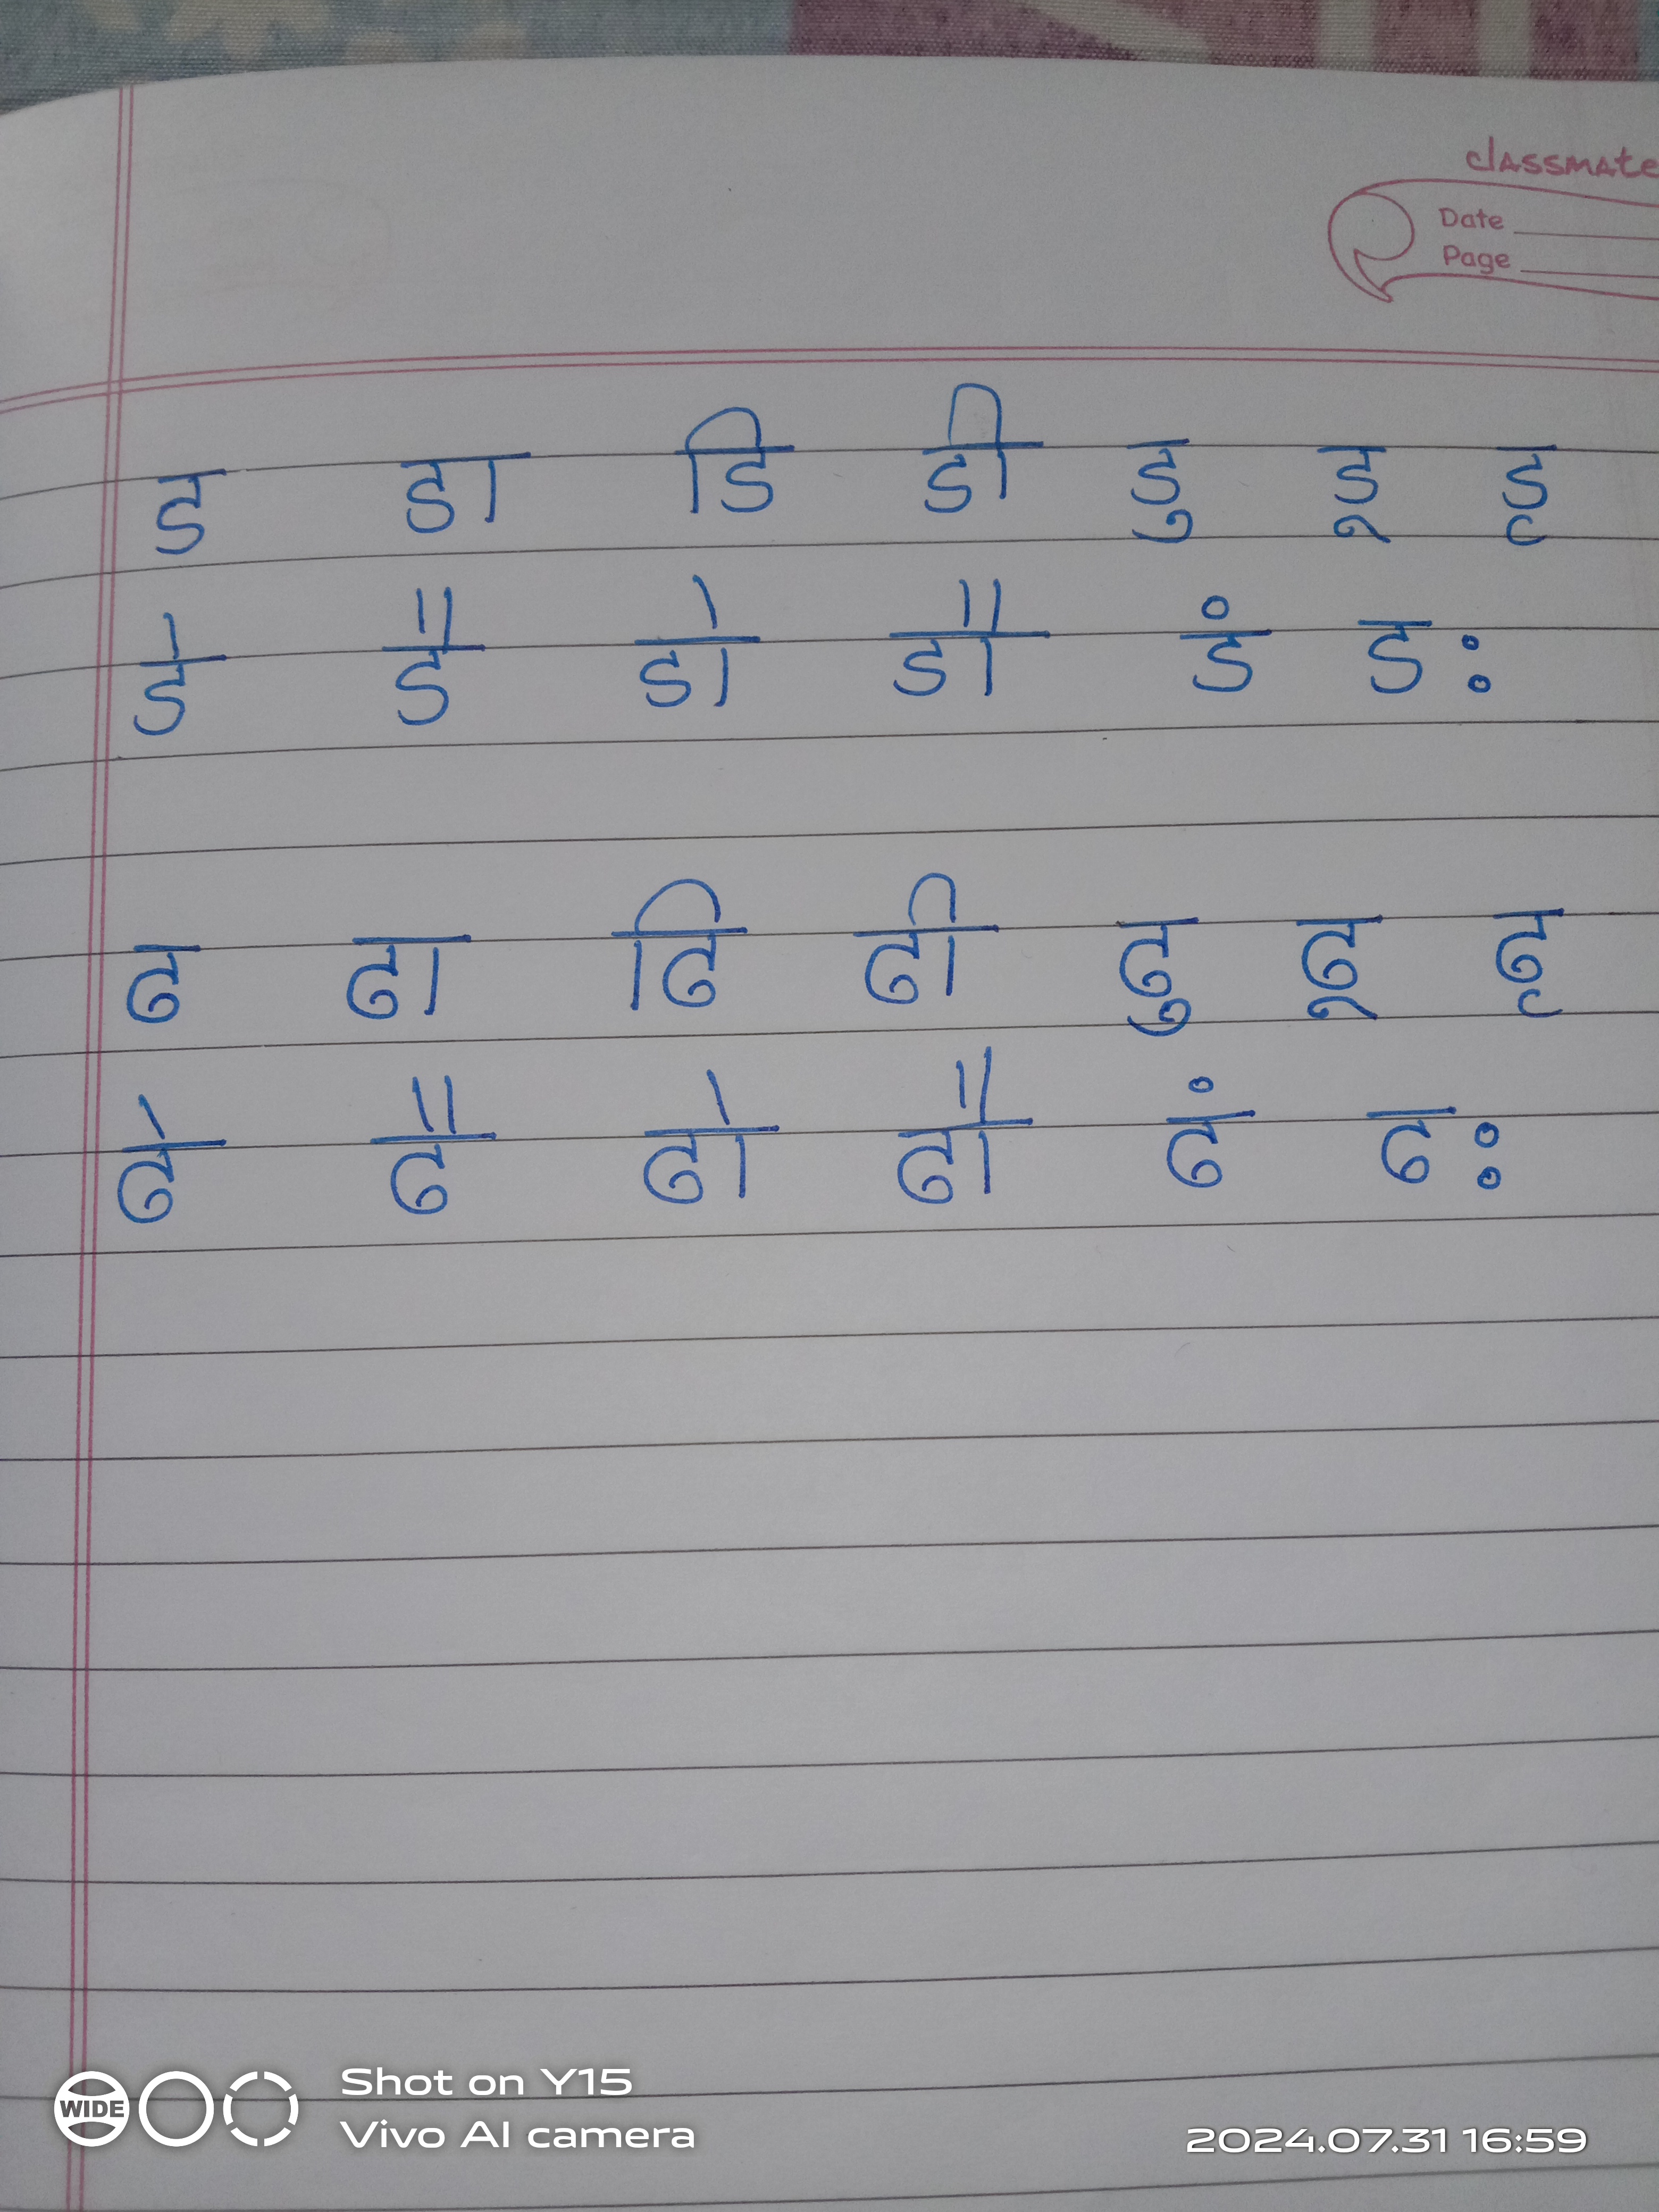 classmate
Date
Page
ड डा डि डी डु डू डृ
डे डै डो डौ डं डः
ढ ढा ढि ढी ढु ढू ढृ
ढे ढै ढो ढौ ढं ढः
WIDE
Shot on Y15
Vivo AI camera
2024.07.31 16:59